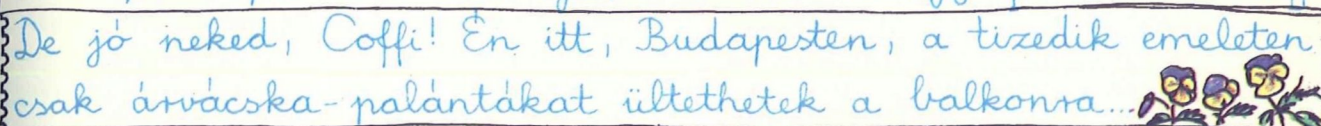 De jó neked, Coffi! Én itt, Budapesten, a tizedik emeleten
csak árvácska-palántákat ültethetek a balkonra...